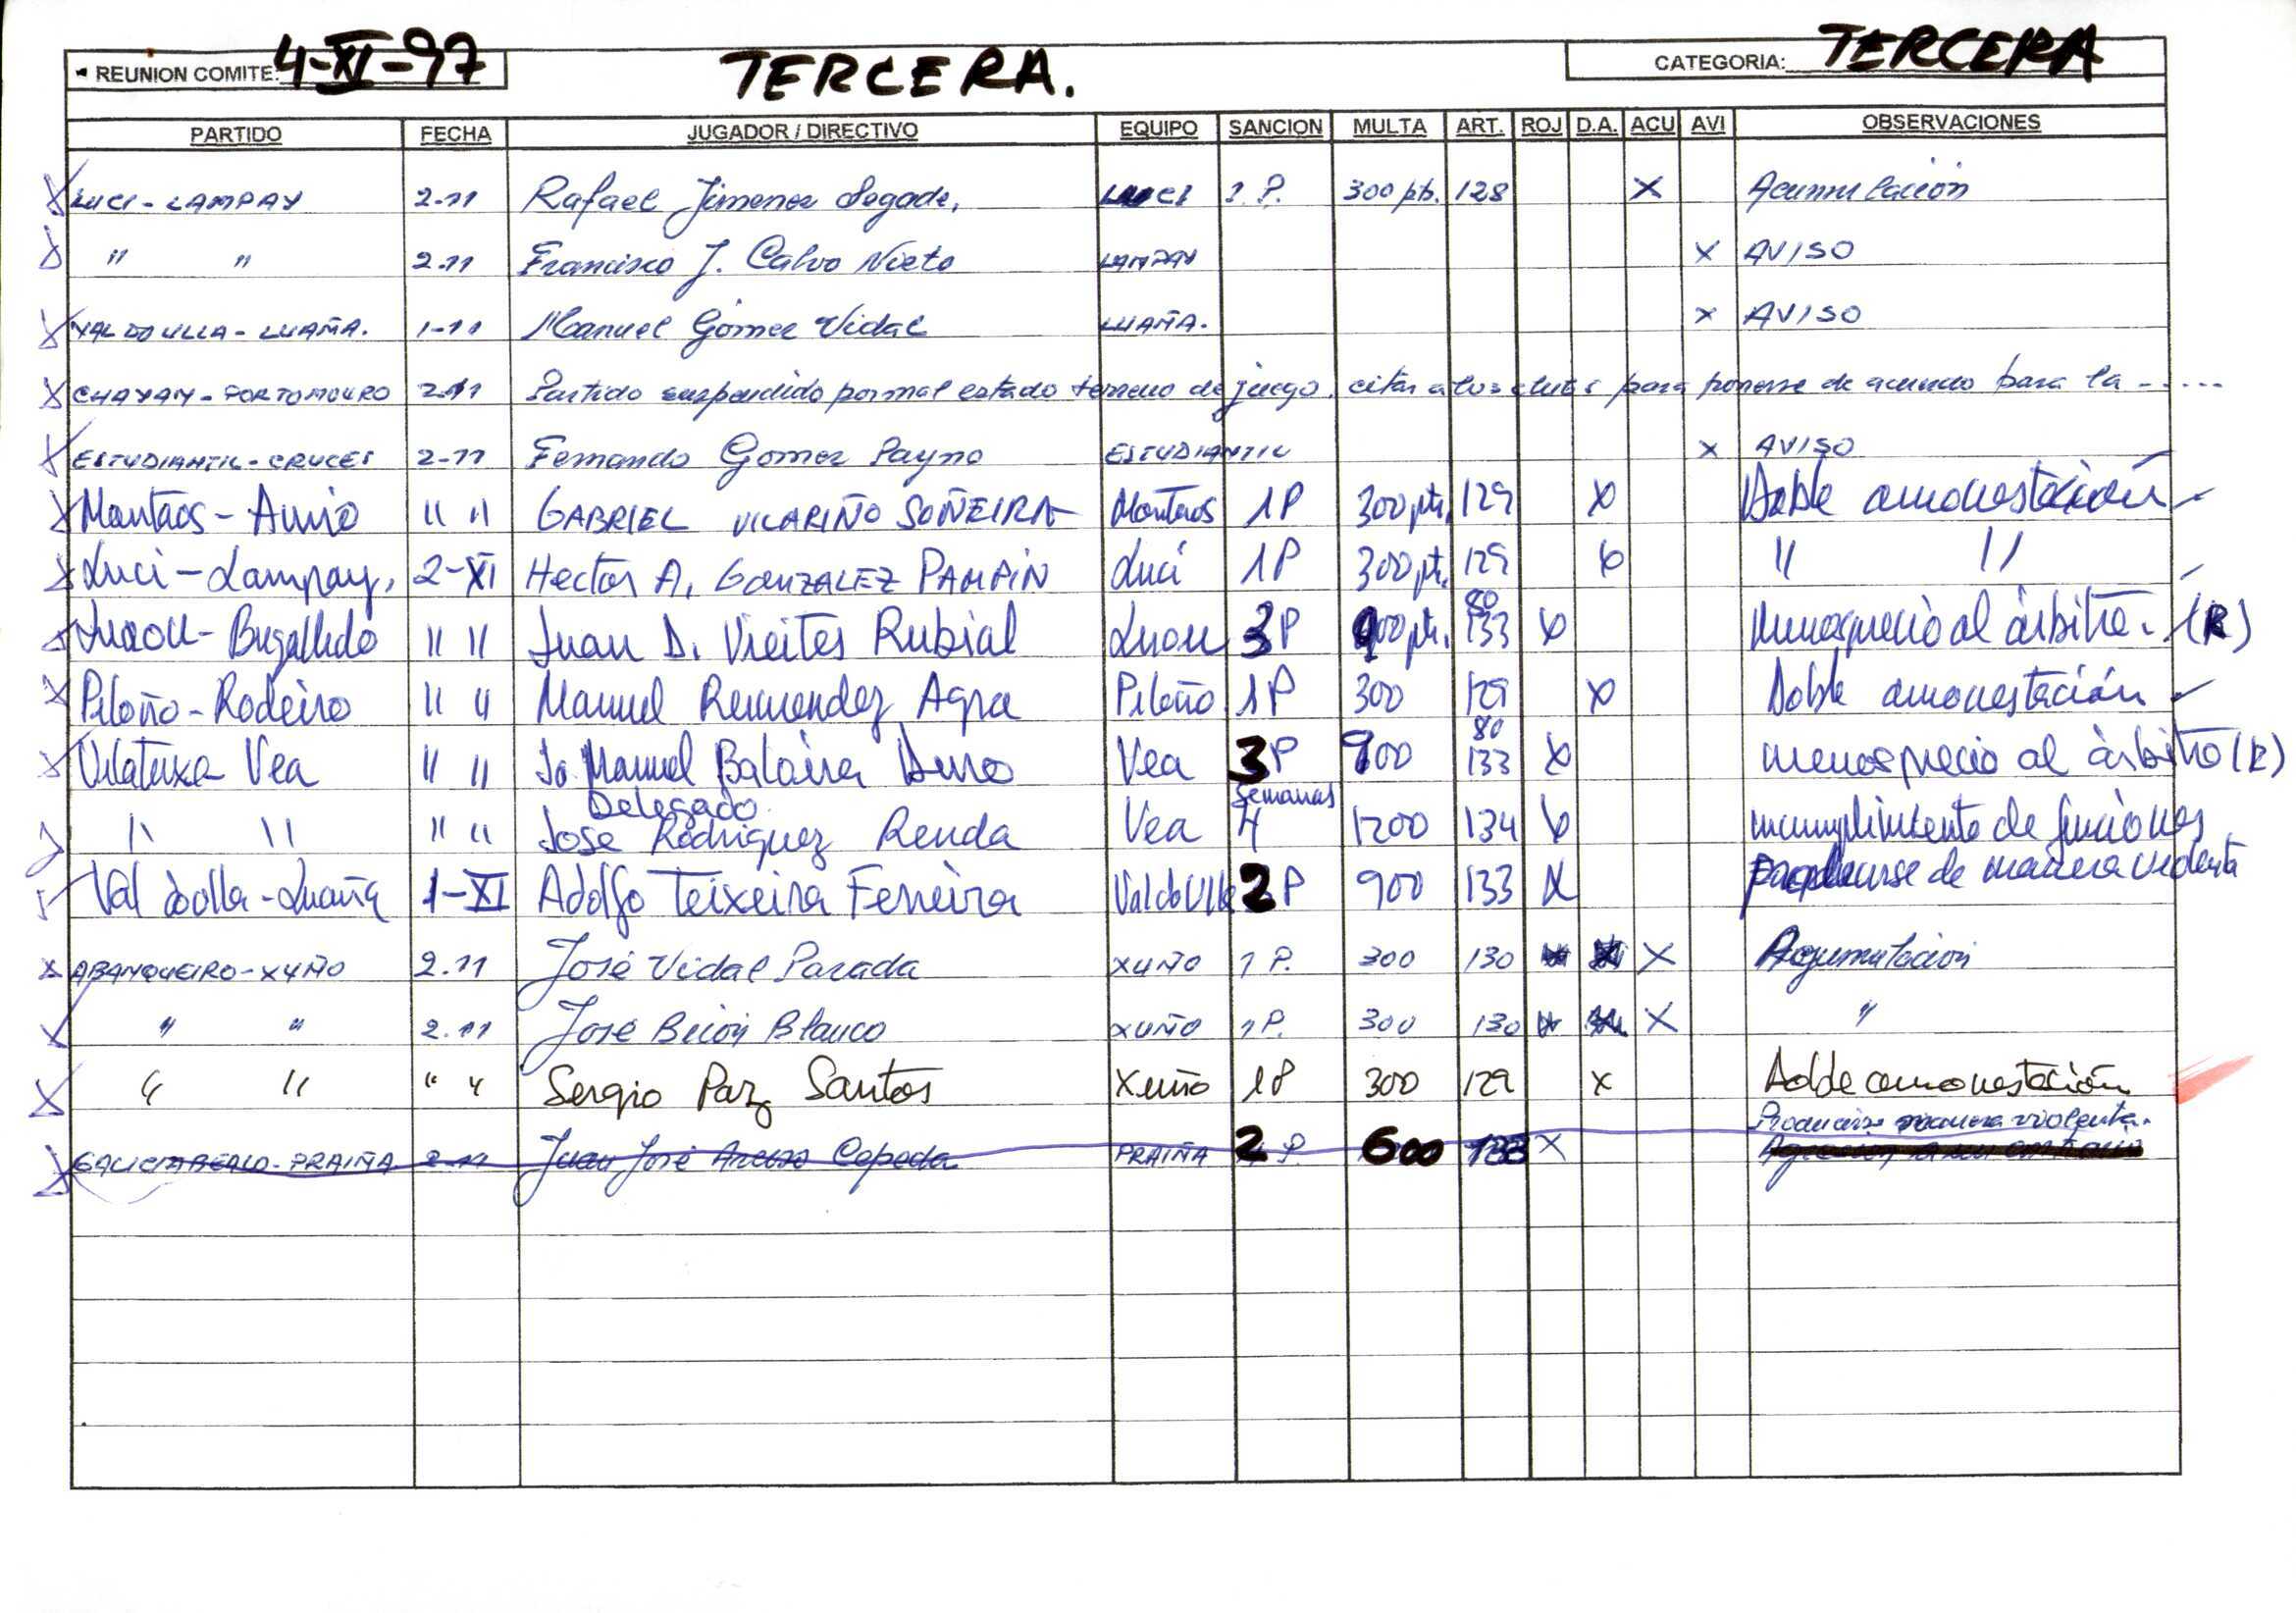 REUNION COMITE: 4-XI-97 TERCERA. CATEGORIA: TERCERA
PARTIDO FECHA JUGADOR / DIRECTIVO EQUIPO SANCION MULTA ART. ROJ D.A. ACU AVI OBSERVACIONES
LUCI - LAMPAY 2-11 Rafael Jimenez Segade, LUCI 1 P. 300 pts. 128 X Acumulación
" " 2.11 Francisco J. Calvo Nieto LAMPAY X AVISO
VALDOULLA - LUAÑA. 1-11 Manuel Gómez Vidal LUAÑA. X AVISO
CHAYAN - PORTOMOURO 2-11 Partido suspendido por mal estado terreno de juego, citar a los clubs para ponerse de acuerdo para la - ....
ESTUDIANTIL - CRUCES 2-11 Fernando Gomez Payno ESTUDIANTIL X AVISO
Montaos - Amio " " GABRIEL VILARIÑO SOÑEIRA Montaos 1P 300 pts. 129 X Doble amonestación
Luci - Lampay, 2-XI Hector A. GONZALEZ PAMPIN Luci 1P 300 pts. 129 X " "
Luou - Bugallido " " Juan D. Vieites Rubial Luou 3P 900 pts. 80 133 X Menosprecio al árbitro. (R)
Piloño - Rodeiro " " Manuel Remendez Agra Piloño 1P 300 129 X Doble amonestación
Vilatuxe Vea " " Jo. Manuel Baloira Duro Vea 3P 900 80 133 X menosprecio al árbitro (R)
Delegado semanas
" " " " Jose Rodriguez Renda Vea 4 1200 134 X incumplimiento de funciones
Val doulla - Luaña 1-XI Adolfo Teixeira Ferreira Valdoulla 2P 900 133 X producirse de manera violenta
ABANQUEIRO - XUÑO 2.11 José Vidal Parada XUÑO 1 P. 300 130 X Acumulación
" " 2.11 José Bicon Blanco XUÑO 1P. 300 130 X "
" " " " Sergio Paz Santos Xuño 1P 300 129 X Doble amonestación
Producirse manera violenta.
PRAIÑA 2-11 Juan José Cepeda PRAIÑA 2 P. 600 133 X